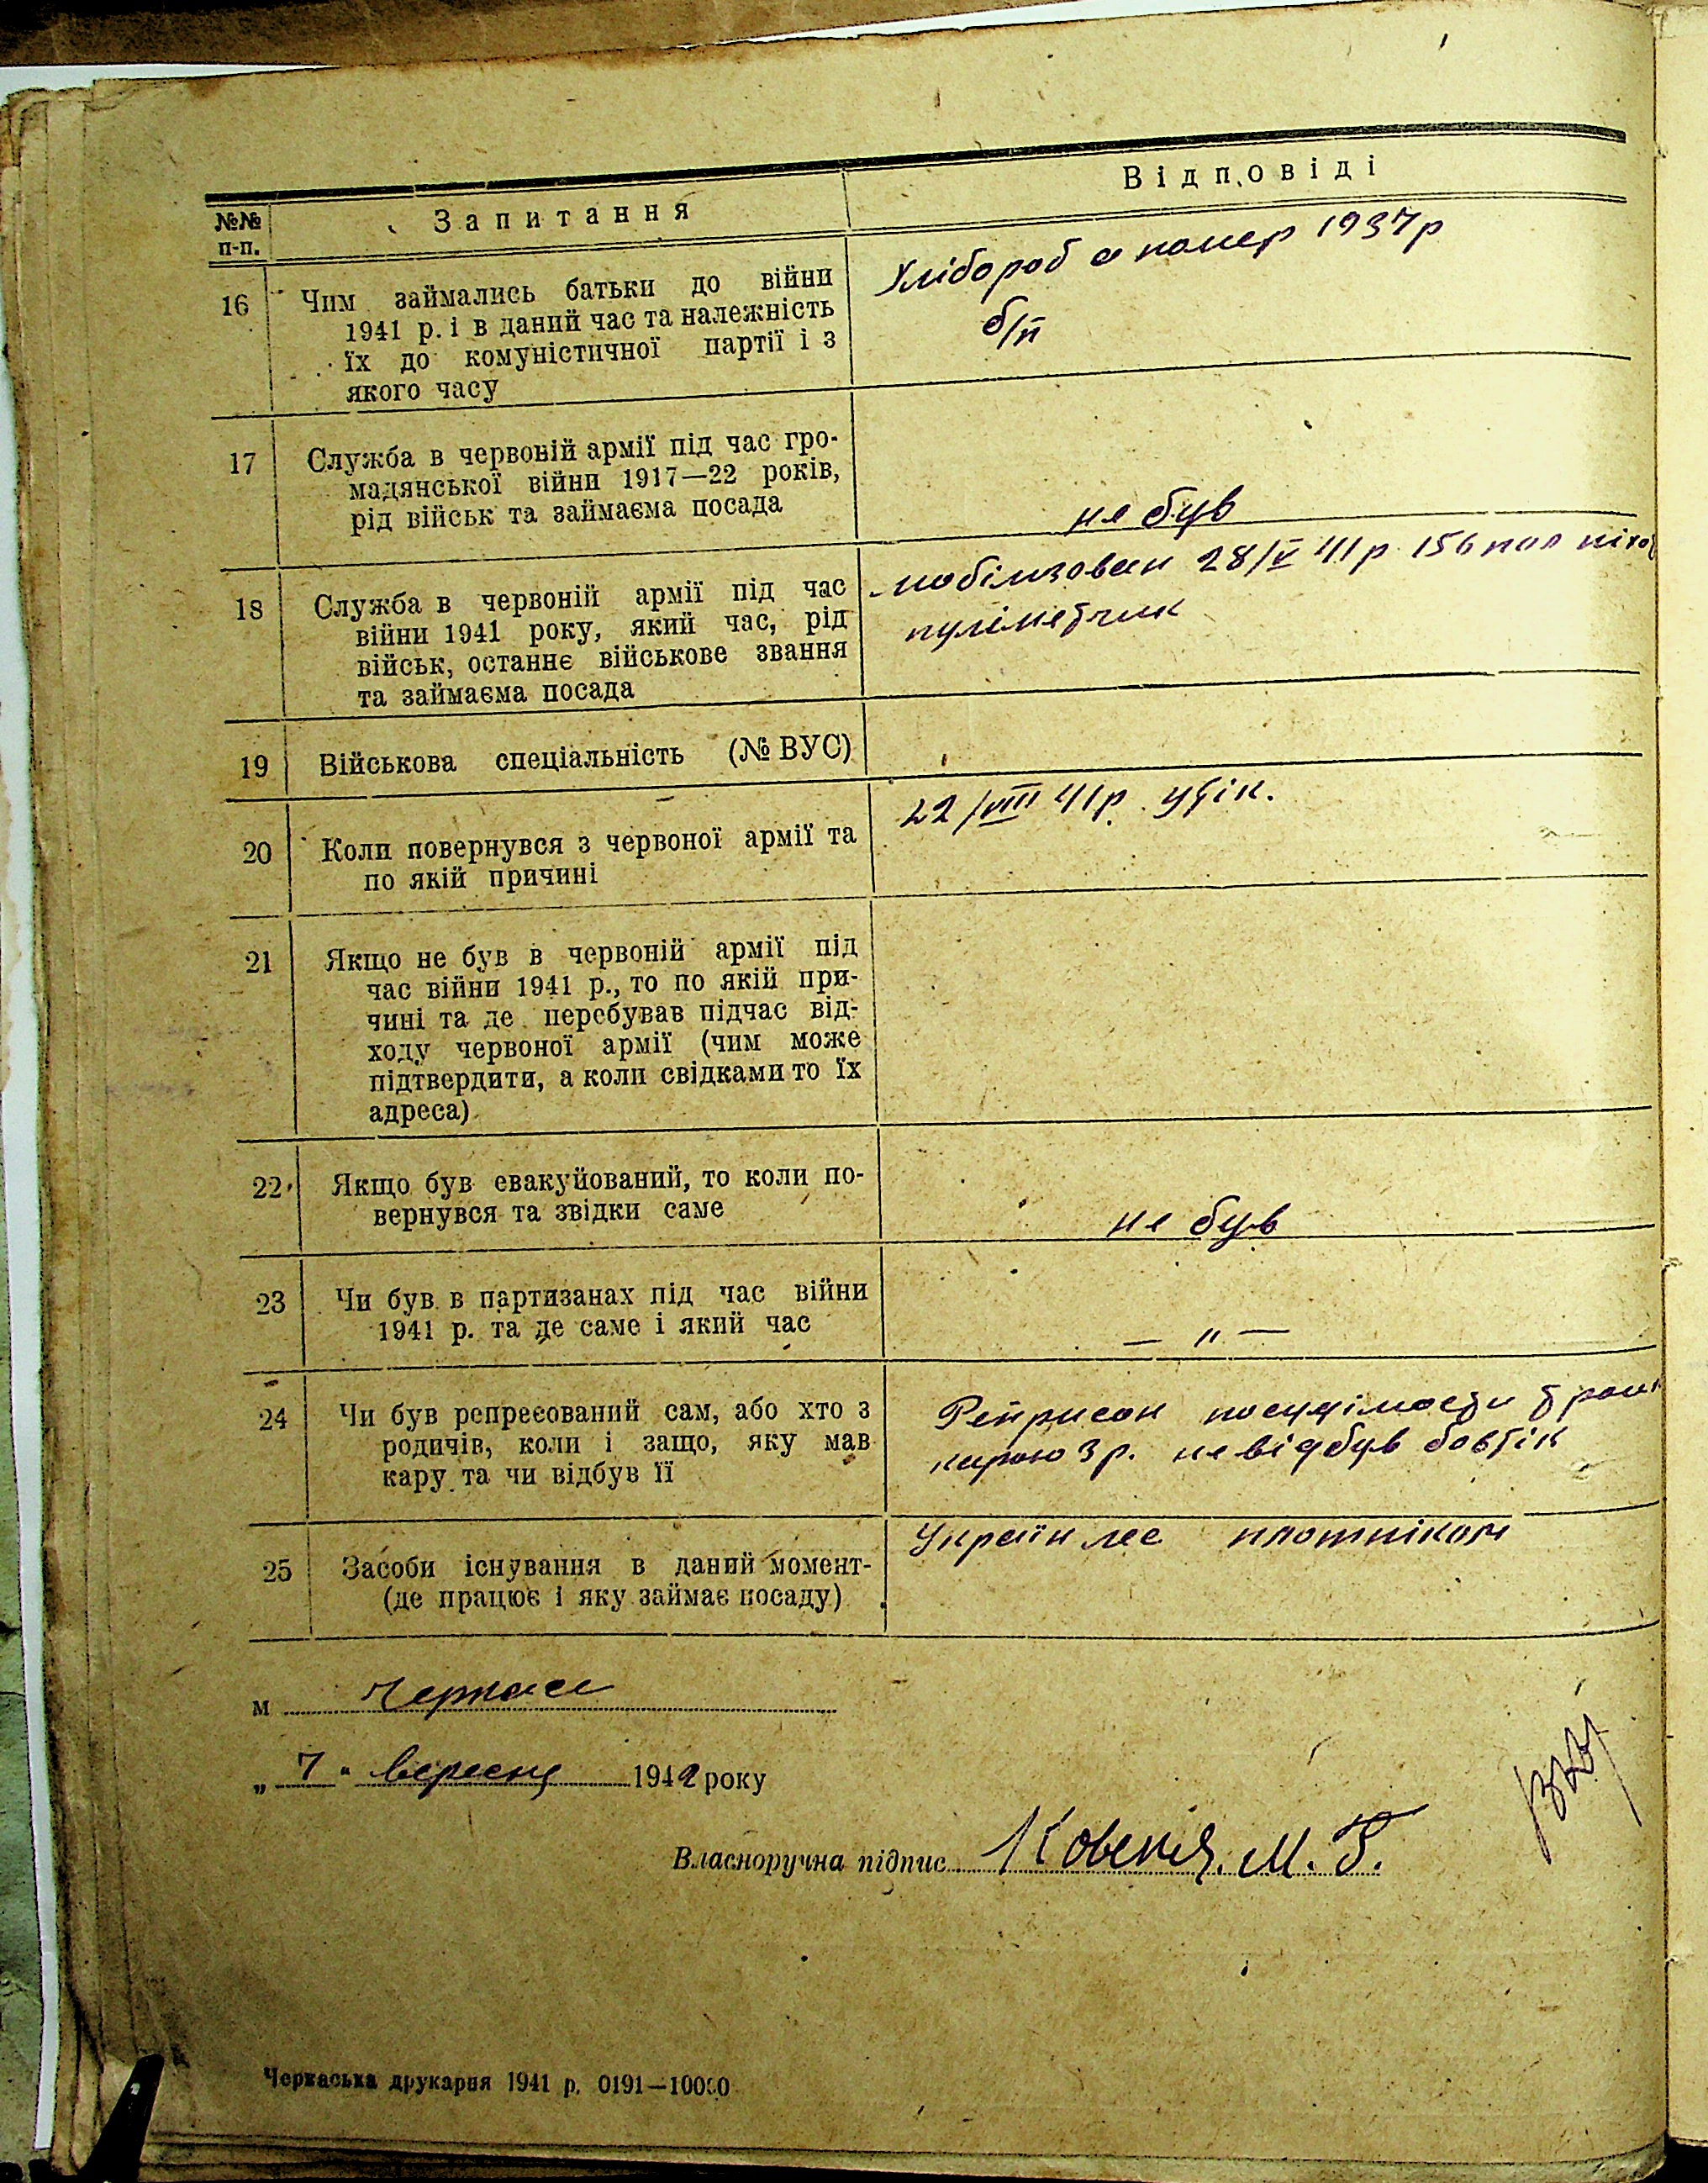 №№ п-п.
Запитання
Відповіді
16
Чим займались батьки до війни
1941 р. і в даний час та належність
їх до комуністичної партії і з
якого часу
Хлібороб а помер 1937р
б/п
17
Служба в червоній армії під час гро-
мадянської війни 1917—22 років,
рід військ та займаєма посада
не був
18
Служба в червоній армії під час
війни 1941 року, який час, рід
військ, останнє військове звання
та займаєма посада
мобілизован 28/V 41р 156 пол піхо
пулімет чик
19
Військова спеціальність (№ ВУС)
20
Коли повернувся з червоної армії та
по якій причині
22/VIII 41р. утік.
21
Якщо не був в червоній армії під
час війни 1941 р., то по якій при-
чині та де перебував підчас від-
ходу червоної армії (чим може
підтвердити, а коли свідками то їх
адреса)
22
Якщо був евакуйований, то коли по-
вернувся та звідки саме
не був
23
Чи був в партизанах під час війни
1941 р. та де саме і який час
— " —
24
Чи був репресований сам, або хто з
родичів, коли і защо, яку мав
кару та чи відбув її
карою 3 р. не відбув бо втік
25
Засоби існування в даний момент-
(де працює і яку займає посаду)
Україн лес плотніком
м Черкаси
„ 7 " вересня 1942 року
Власноручна підпис М. Г.
Черкаська друкарня 1941 р. 0191—10000